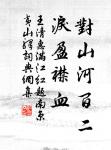 對山河百二
淚盈襟血
王清惠滿江紅題南京
夷山驛詞典網集